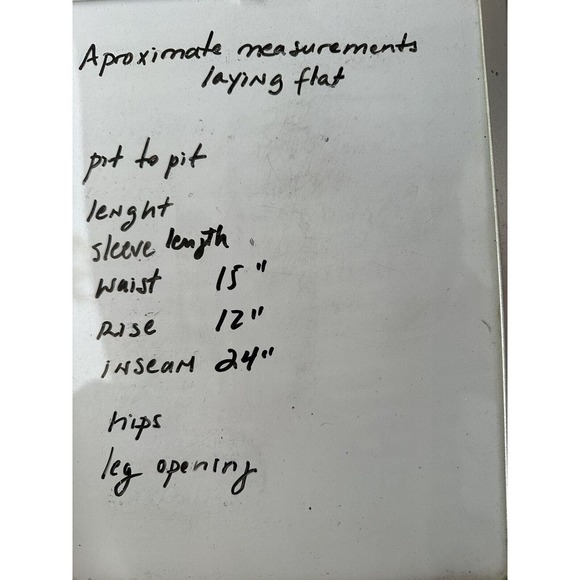 Aproximate measurements
laying flat
pit to pit
lenght
sleeve length
waist 15"
Rise 12"
inseam 24"
hips
leg opening